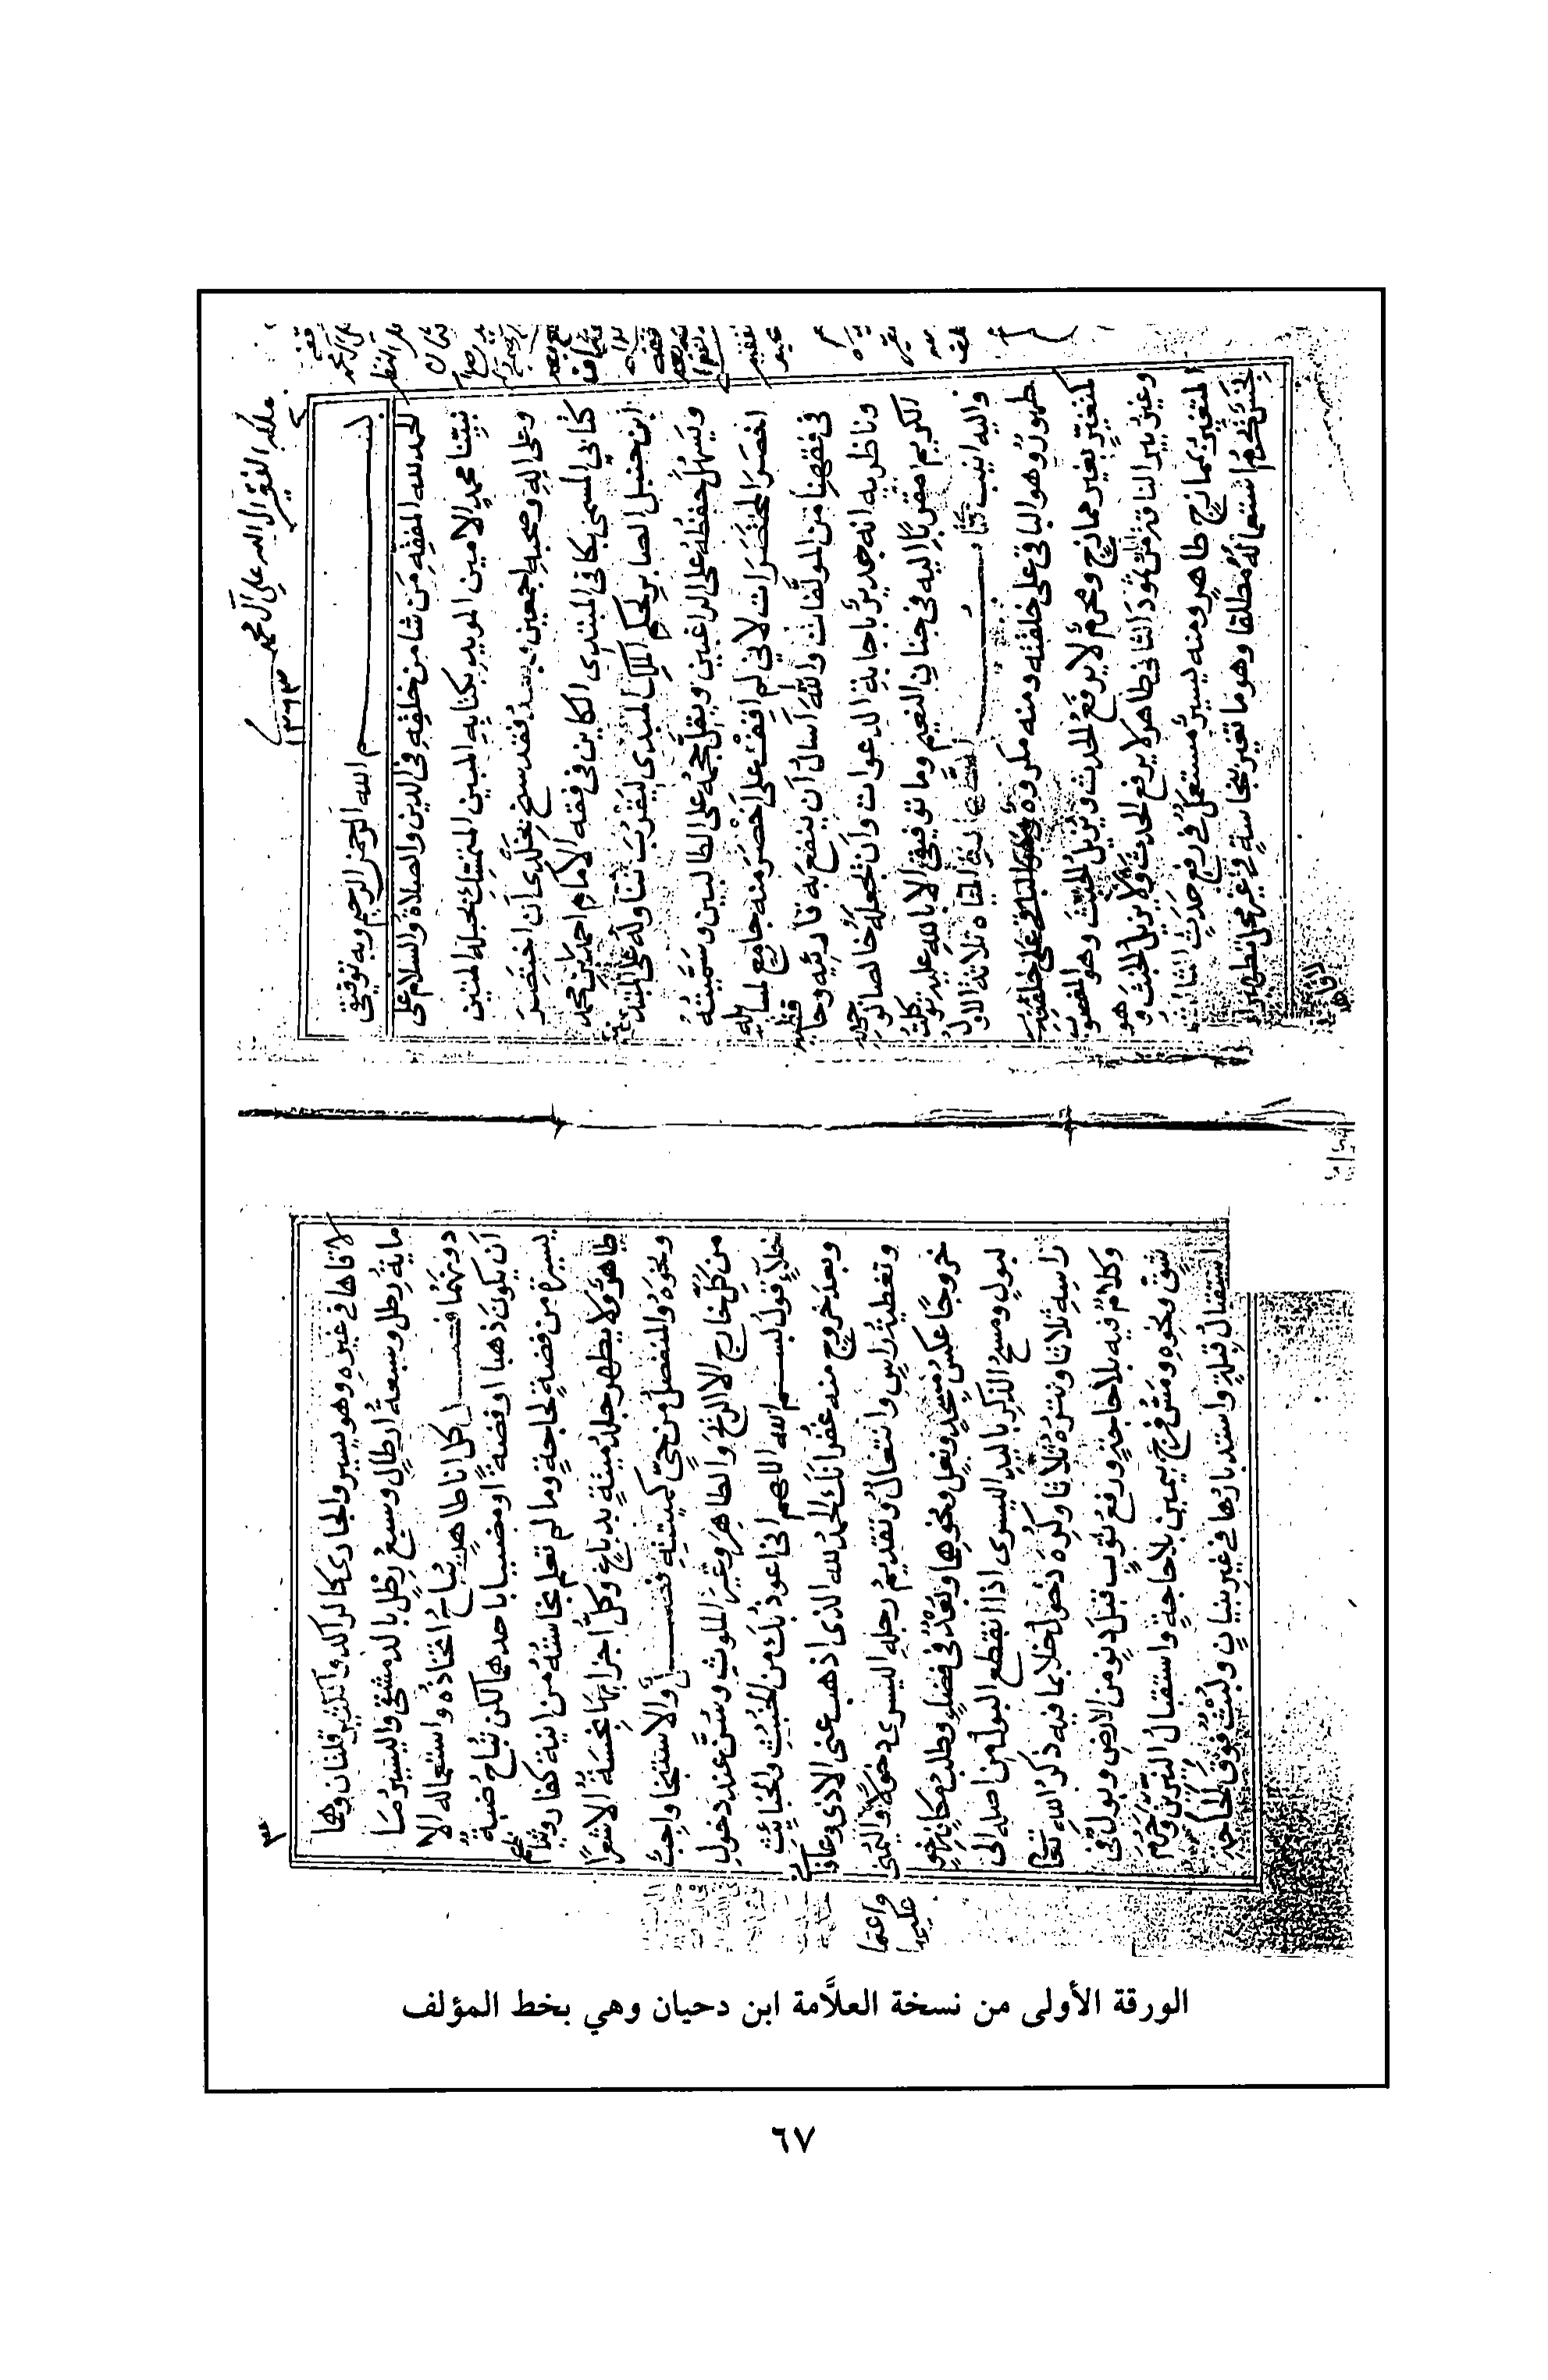 ملكه الفقير الى الله علي آل محمد
١٣٦٣
بسم الله الرحمن الرحيم وبه توفيقي
الحمد لله المفقه من شا من خلقه في الدين والصلاة والسلام على
نبينا محمد الامين المويد بكتابه المبين المتمسك بحبله المتين
وعلى اله وصحبه اجمعين وبعد فقد سنح بخلدي أن اختصر
كتابي المسمى بكافي المبتدي الكاين في فقه الامام احمد بن محمد
ابن حنبل الصابر لحكم الملك المبدي ليقرب تناوله على المبتد
ويسهل حفظه على الراغبين ويقل حجمه على الطالبين وسميته
اخصر المختصرات لاني لم اقف على اخصر منه جامع لمسايله
في فقهنا من المولفات والله أسأل أن ينفع به قارئيه وحافظيه
وناظريه انه جدير باجابة الدعوات وأن يجعله خالصا لوجهه
الكريم مقربا اليه في جنات النعيم وما توفيقي الا بالله عليه توكلت
واليه انيب كتاب الطهارة المياه ثلاثة الاول
طهور وهو الباقي على خلقته ومنه مكروه وهو الباقي على خلقته
كمتغير بغير ممازج ومحرم لا يرفع الحدث ويزيل الخبث وهو المغصوب
وغير بير الناقة من ثمود الثاني طاهر لا يرفع الحدث ولا يزيل الخبث وهو
المتغير بممازج طاهر ومنه يسير مستعمل في رفع حدث الثالث
نجس يحرم استعماله مطلقا وهو ما تغير بنجاسة في غير محل تطهير او
لاقاها
٣
لاقاها في غيره وهو يسير والجاري كالراكد والكثير قلتان وهما
ماية رطل وسبعة أرطال وسبع رطل بالدمشقي واليسير ما
دونهما فصل كل انا طاهر يباح اتخاذه واستعماله الا
أن يكون ذهبا او فضة او مضببا باحدهما لكن تباح ضبة
يسيرة من فضة لحاجة وما لم تعلم نجاسته من انية كفار وثيابهم
طاهر ولا يطهر جلد ميتة بدباغ وكل أجزايها نجسة الا شعرا
ونحوه والمنفصل من حي كميتته فصل والاستنجا واجب
من كل خارج الا الريح والطاهر وغير الملوث وسن عند دخول
خلاء قول بسم الله اللهم اني اعوذ بك من الخبث والخبائث
وبعد خروج منه غفرانك الحمد لله الذي اذهب عني الاذى وعافاني
وتغطية راس وانتعال وتقديم رجله اليسرى دخولا واليمنى
واعتما
عليها
خروجا عكس مسجد ونعل ونحوهما وبعد في فضاء وطلب مكان رخو
لبول ومسح الذكر باليد اليسرى اذا انقطع البول من اصله الى
راسه ثلاثا ونتره ثلاثا وكره دخول خلا بما فيه ذكر الله تعالى
وكلام فيه بلا حاجة ورفع ثوب قبل دنو من الارض وبول في
شق ونحوه ومس فرج بيمين بلا حاجة واستقبال النيرين وحرم
استقبال قبلة واستدبارها في غير بنيان ولبث فوق الحاجة
الورقة الأولى من نسخة العلاَّمة ابن دحيان وهي بخط المؤلف
٦٧